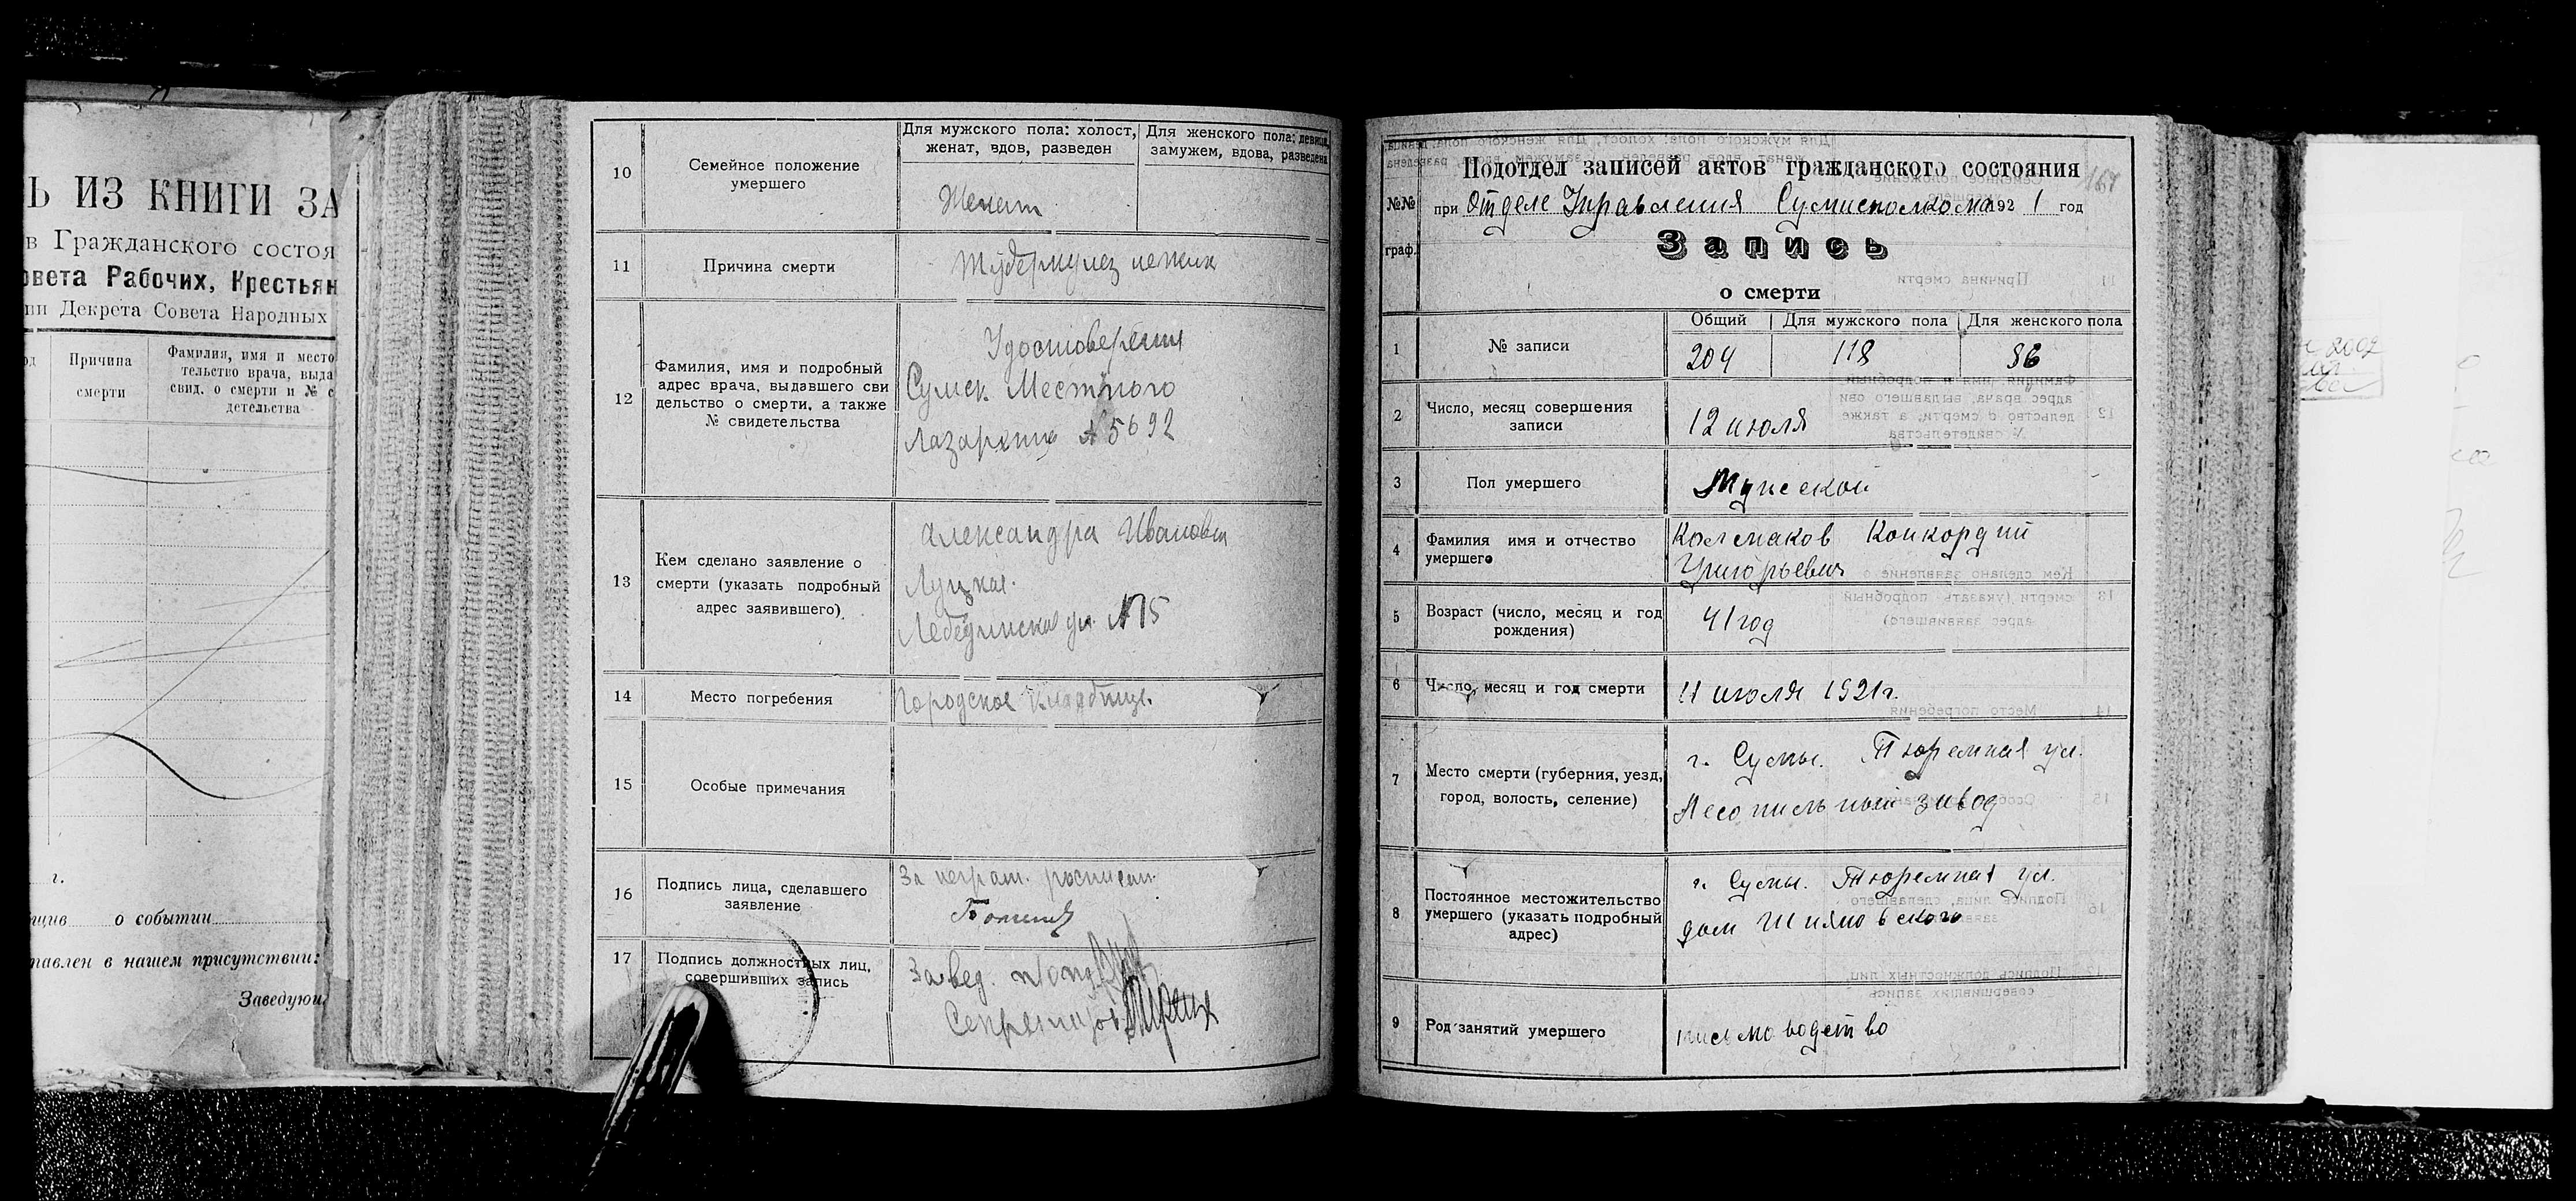 Ь ИЗ КНИГИ ЗА
в Гражданского состоя
овета Рабочих, Крестьян
ии Декрета Совета Народных
од
Причина
смерти
Фамилия, имя и место
тельство врача, выда
свид. о смерти и № с
детельства
г.
щив о событии
тавлен в нашем присутствии:
Заведующ
10
Семейное положение
умершего
Для мужского пола: холост,
женат, вдов, разведен
Для женского пола: девица,
замужем, вдова, разведена
Женат
11
Причина смерти
Туберкулез легких
12
Фамилия, имя и подробный
адрес врача, выдавшего сви
дельство о смерти, а также
№ свидетельства
Удостоверения
Сумск. Местного
Лазарета №5692
13
Кем сделано заявление о
смерти (указать подробный
адрес заявившего)
Александра Ивановна
Луцкая.
Лебединская ул. №75
14
Место погребения
Городское кладбище.
15
Особые примечания
16
Подпись лица, сделавшего
заявление
За неграм. росписал.
17
Подпись должностных лиц,
совершивших запись
Завед.
Секретарь
№№
граф.
Подотдел записей актов гражданского состояния
при Отделе Управления Сумисполкома 192 1 год
Запись
о смерти
1
№ записи
Общий
Для мужского пола
Для женского пола
204
118
86
2
Число, месяц совершения
записи
12 июля
3
Пол умершего
Мужской
4
Фамилия имя и отчество
умершего
Колмаков Конкордий
Григорьевич
5
Возраст (число, месяц и год
рождения)
41 год
6
Число, месяц и год смерти
11 июля 1921г.
7
Место смерти (губерния, уезд,
город, волость, селение)
г. Сумы. Тюремная ул.
Лесопильный завод
8
Постоянное местожительство
умершего (указать подробный
адрес)
г. Сумы. Тюремная ул.
дом
9
Род занятий умершего
письмоводство